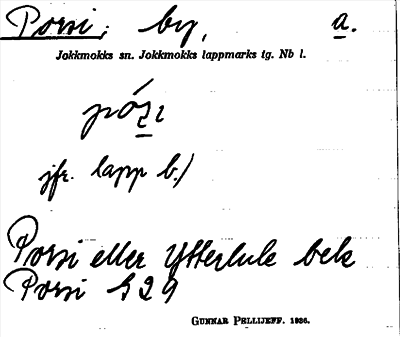 Porsi; by, a.
Jokkmokks sn. Jokkmokks lappmarks tg. Nb l.
jfr. lapp b.)
Porsi eller Ytterlule bek
Porsi § 29
GUNNAR PELLIJEFF. 1936.